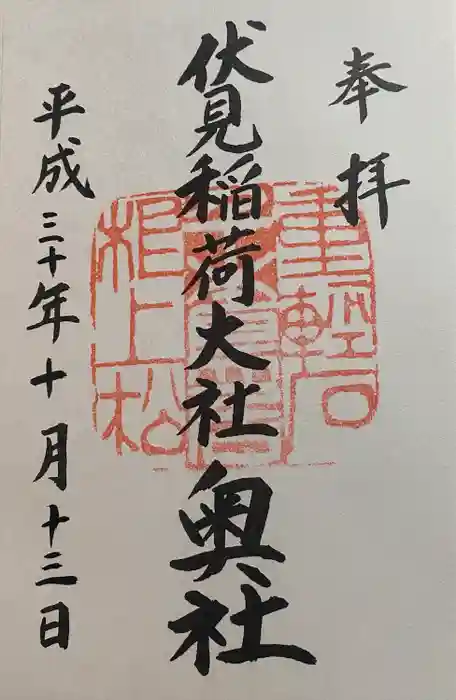 奉拝
伏見稲荷大社 奥社
平成三十年十月十三日
重軽石
根上松